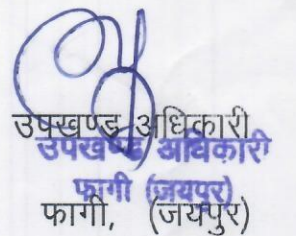 उपखण्ड अधिकारी
उपखण्ड अधिकारी
फागी (जयपुर)
फागी, (जयपुर)